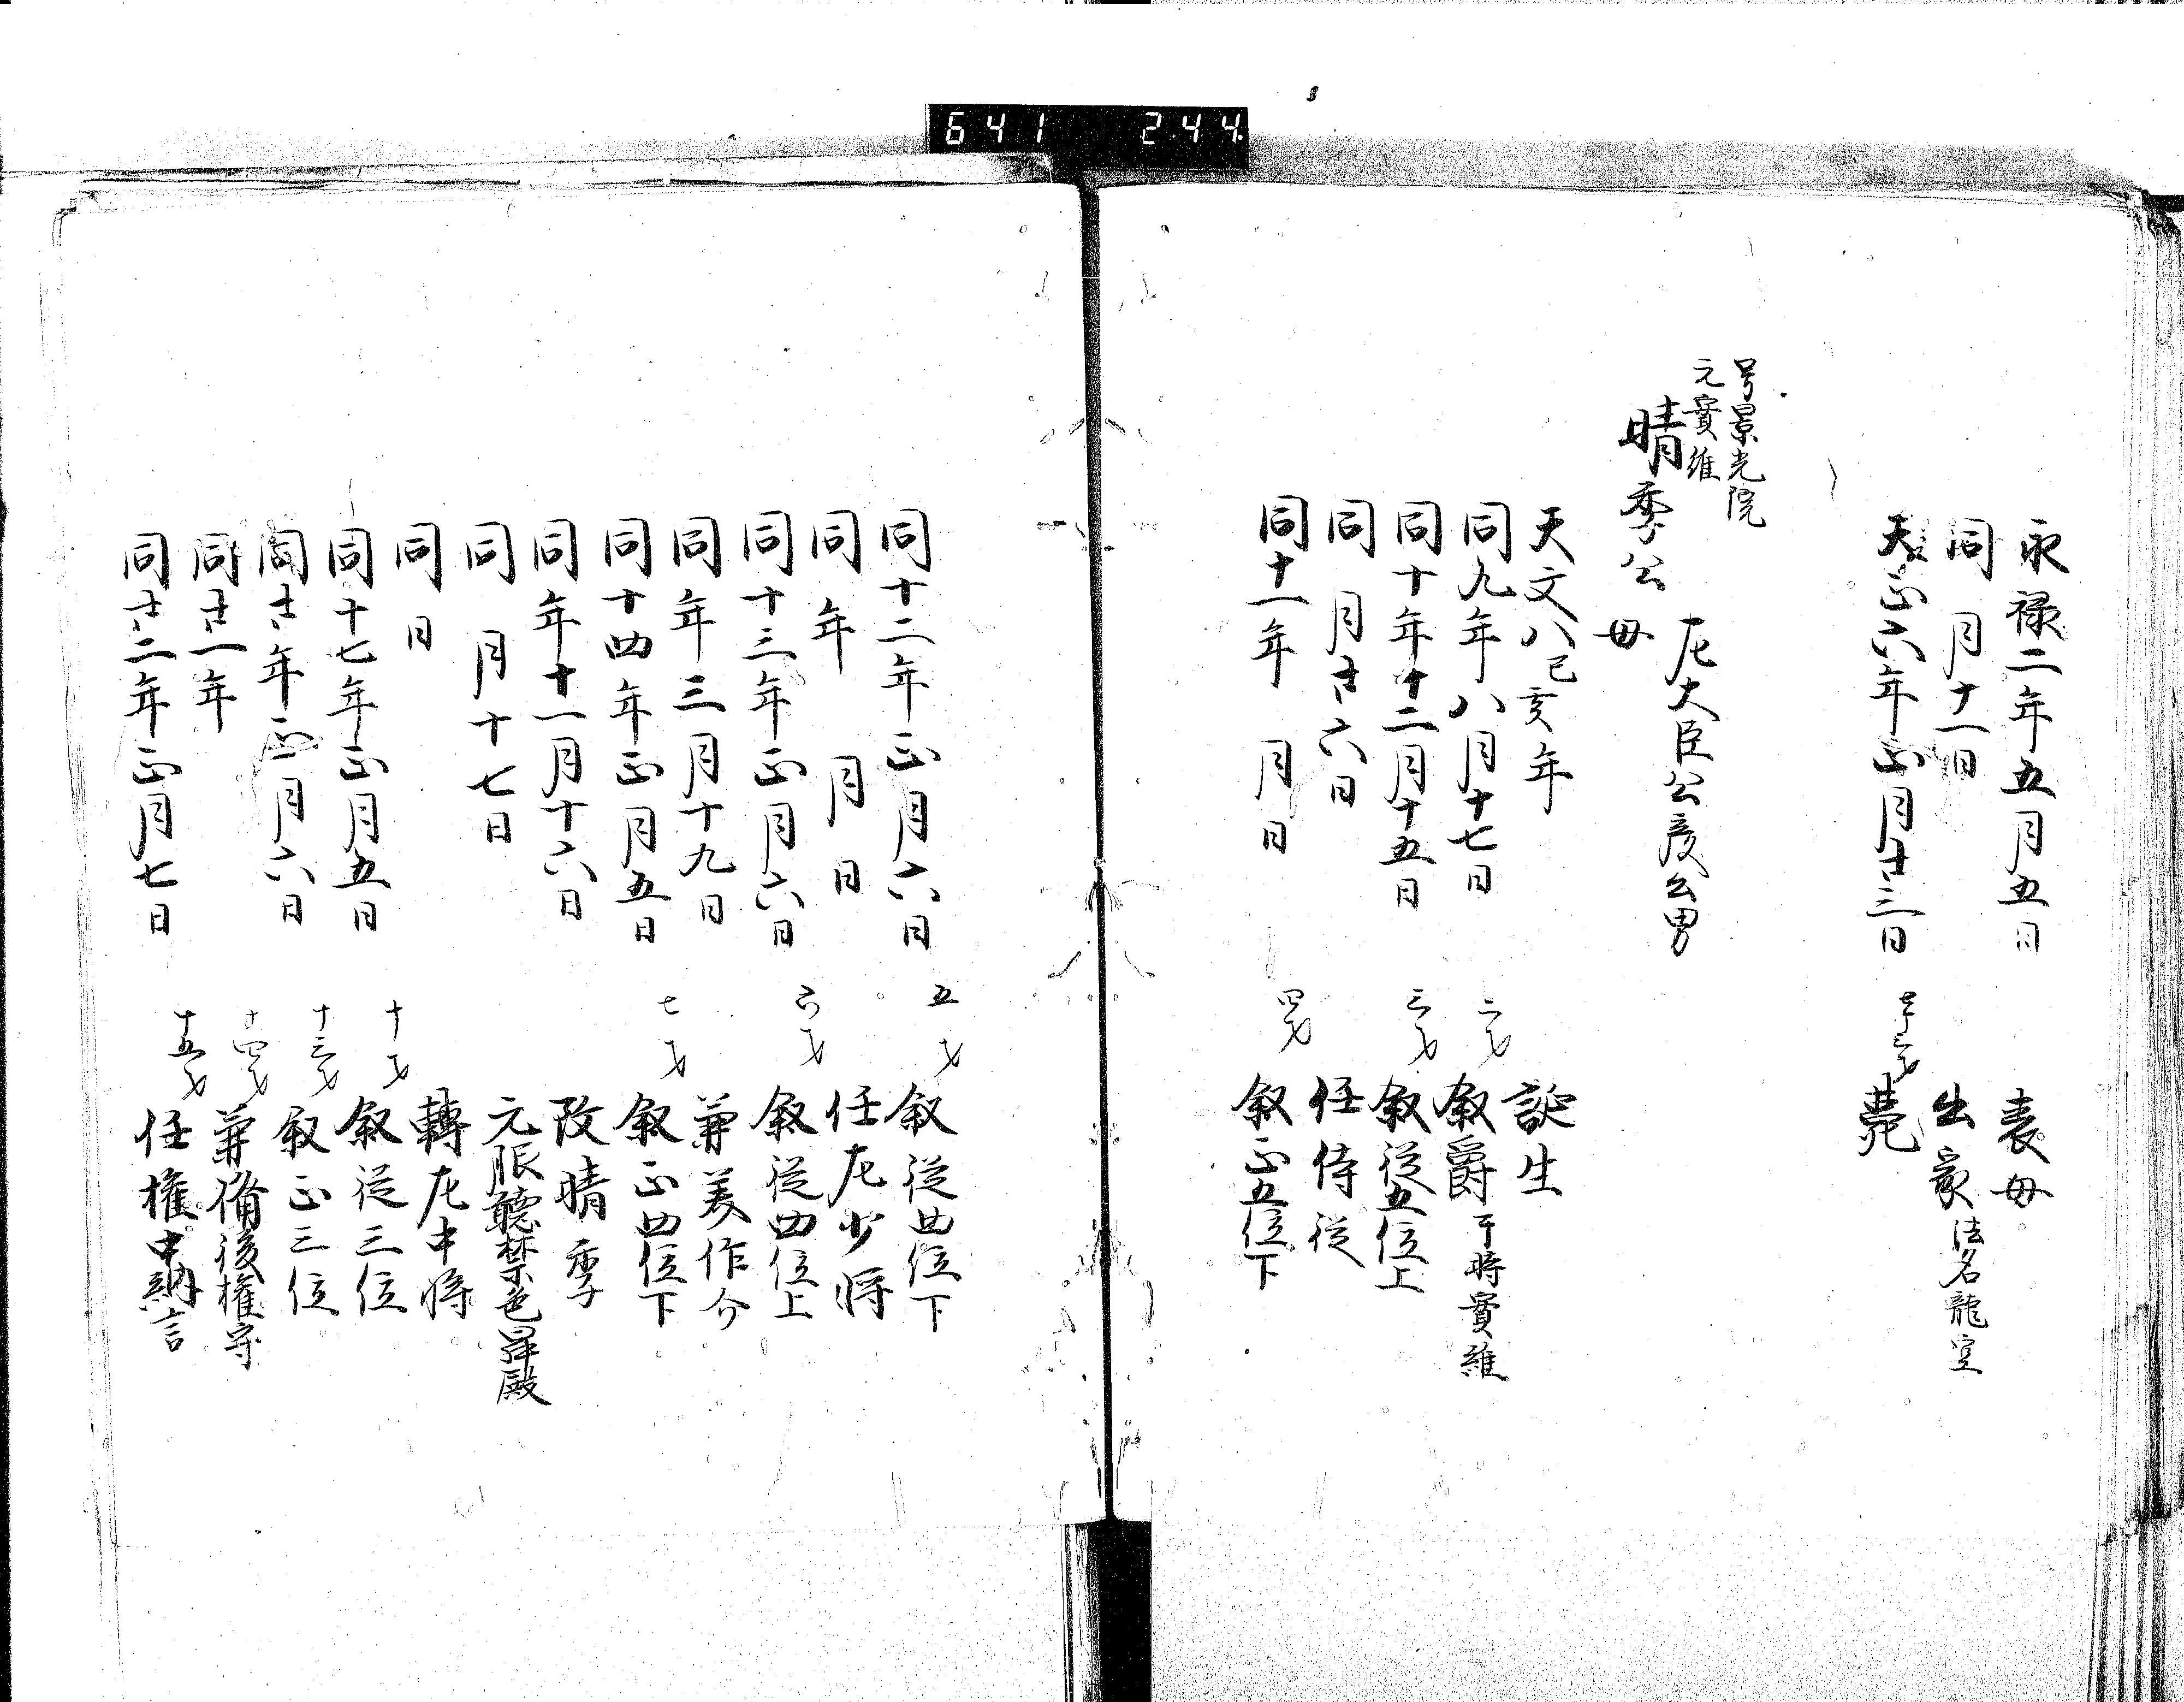 641 244
永禄二年五月五日 喪母
同 月十一日 出家 法名龍空
天正六年正月廿三日 薨
号景光院
元實維
晴季公 左大臣公彦公男
母
天文八己亥年 誕生
同九年八月十七日 二才 叙爵 于時實維
同十年十二月十五日 三才 叙従五位上
同 月廿六日 任侍従
同十一年 月 日 四才 叙正五位下
同十二年正月六日 五才 叙従四位下
同 年 月 日 任左少将
同十三年正月六日 六才 叙従四位上
同 年三月十九日 兼美作介
同十四年正月五日 七才 叙正四位下
同 年十一月十六日 改晴季
同 月十七日 元服聴禁色昇殿
同 日 轉左中将
同十七年正月五日 十才 叙従三位
同廿年正月六日 十三才 叙正三位
同廿一年 十四才 兼備後権守
同廿二年正月七日 十五才 任権中納言